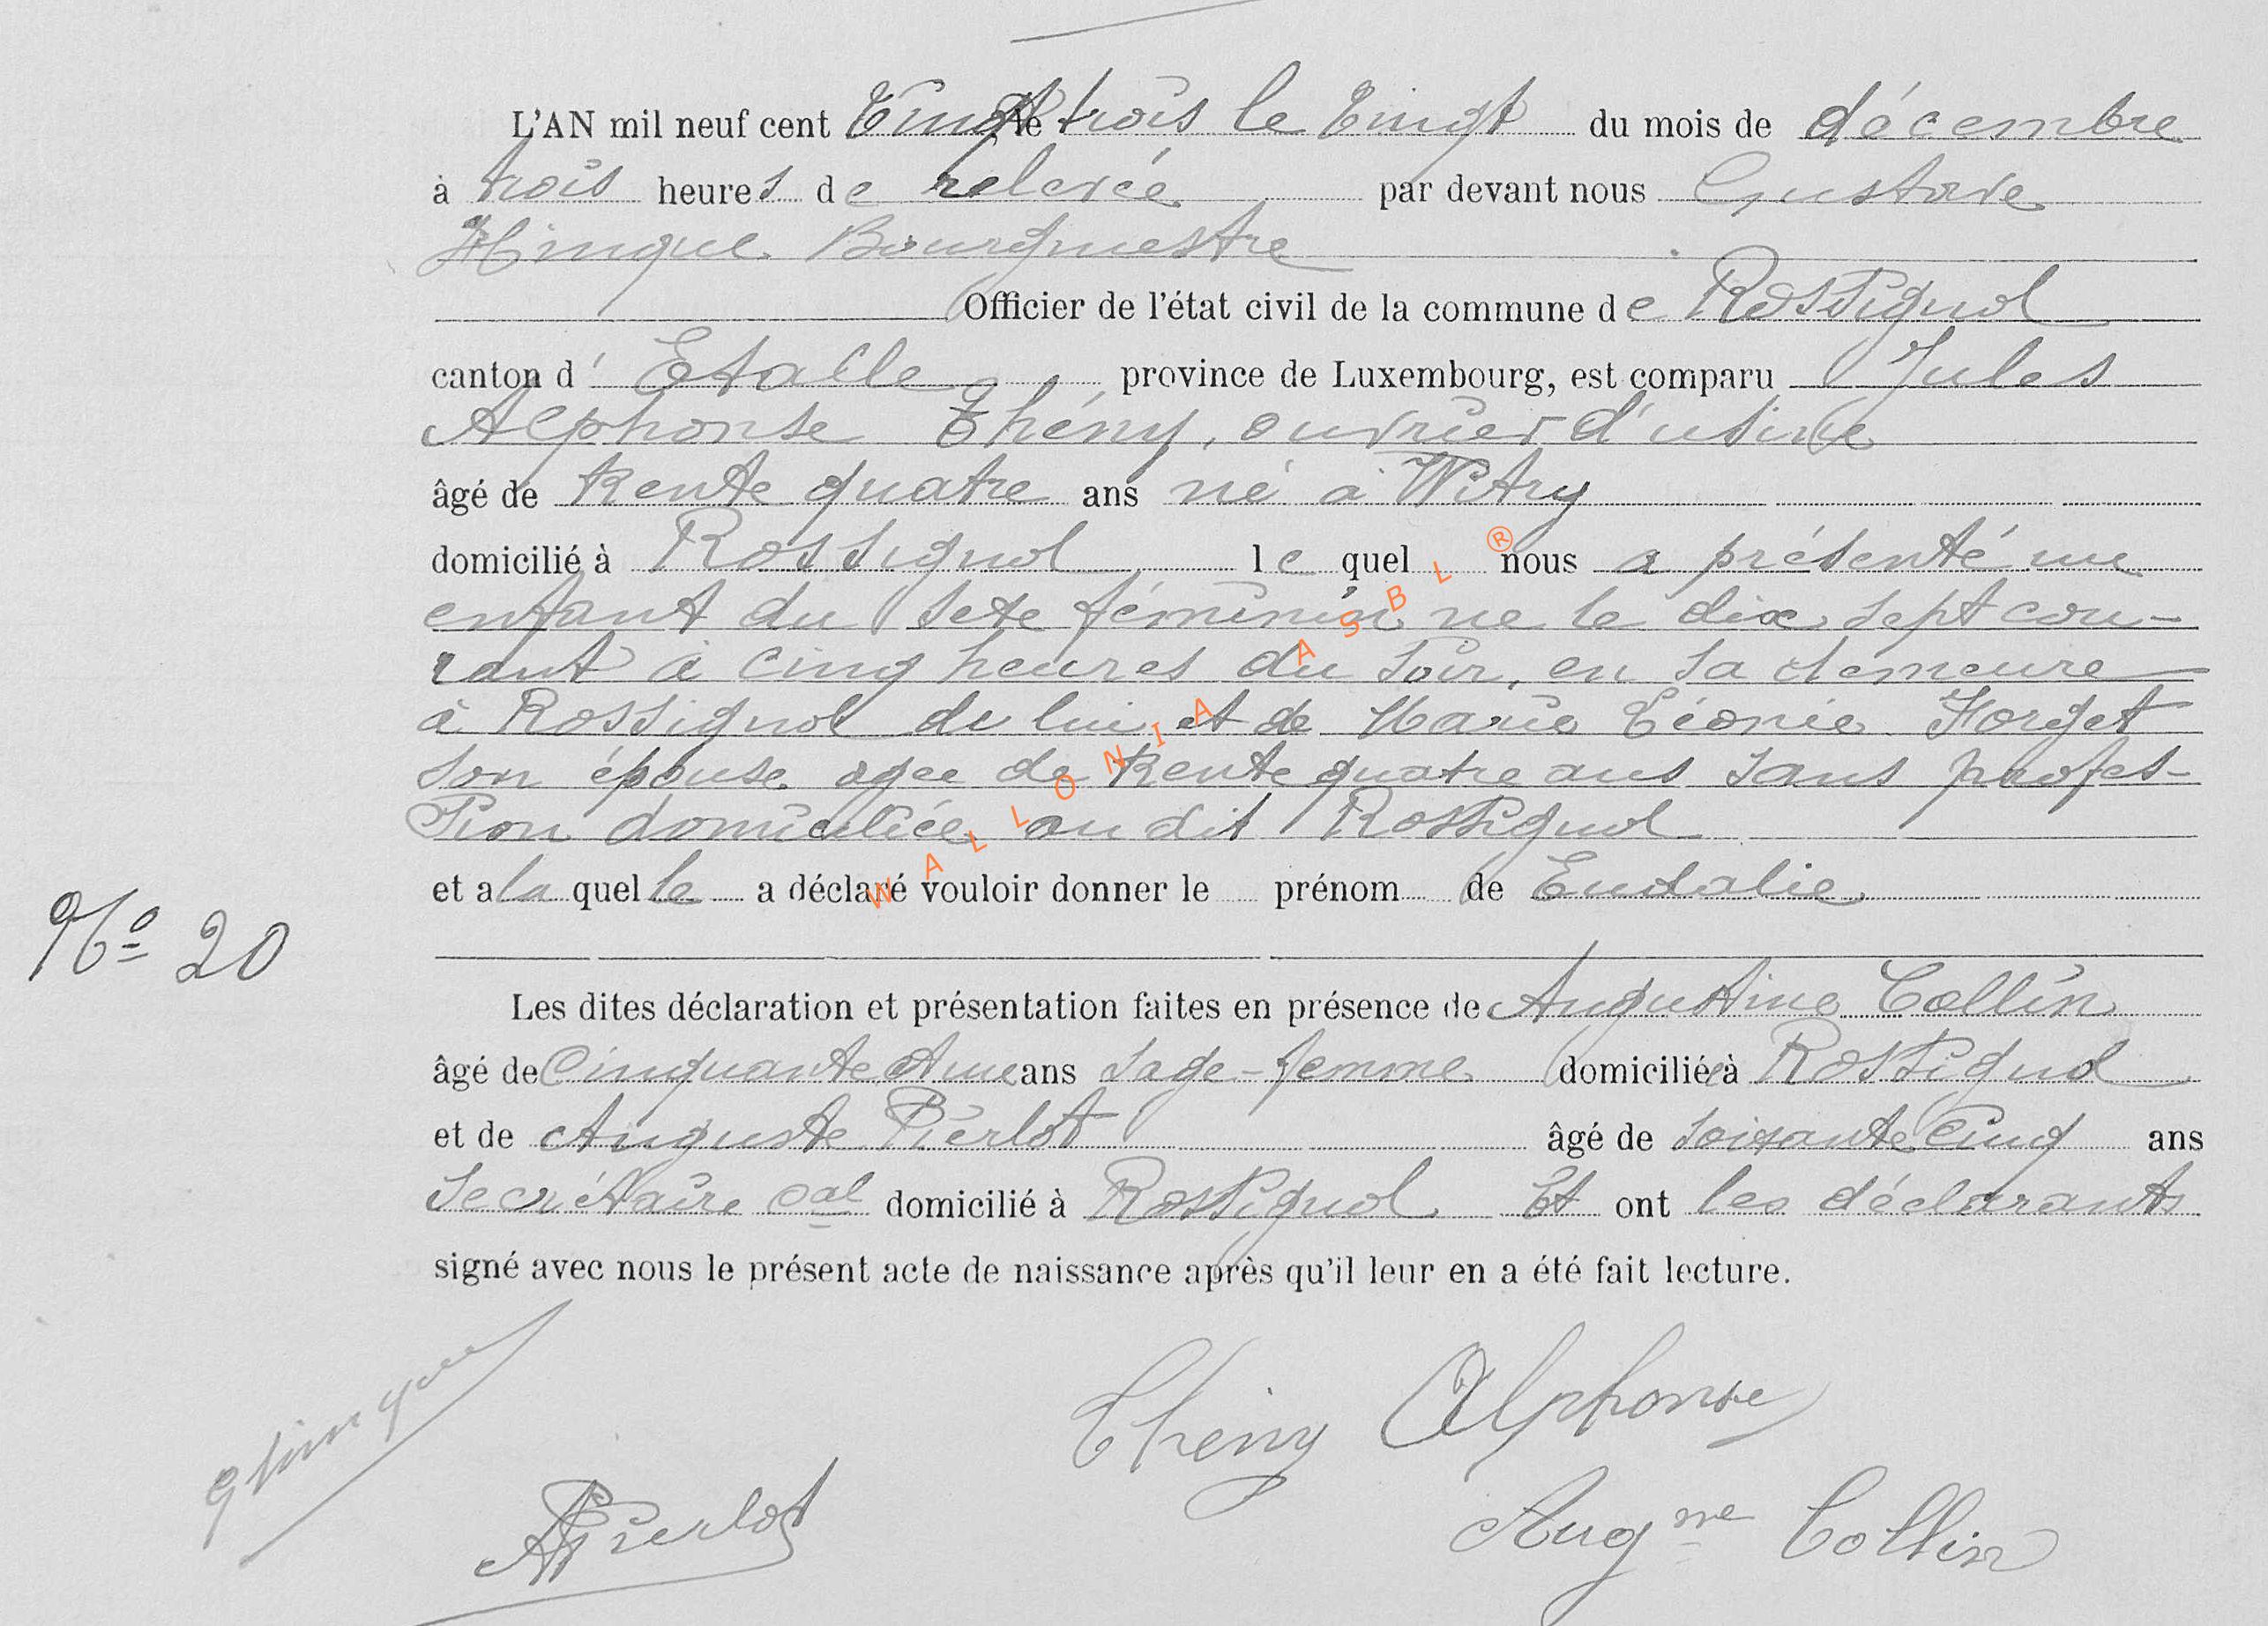 L'AN mil neuf cent Vingt trois le Vingt du mois de décembre
à trois heures de relevée par devant nous Gustave
Hinque Bourgmestre
Officier de l'état civil de la commune de Rossignol
canton d' Etalle province de Luxembourg, est comparu Jules
Alphonse Thény, ouvrier d'usine
âgé de trente quatre ans né à Witry
domicilié à Rossignol le quel nous a présenté un
enfant du sexe féminin né le dix sept cou-
rant à cinq heures du soir, en sa demeure
à Rossignol de lui et de Marie Léonie Forget
son épouse agee de trente quatre ans sans profes-
sion domiciliée au dit Rossignol
et a la quel le a déclaré vouloir donner le prénom de Eudalie
N° 20
Les dites déclaration et présentation faites en présence de Augustine Collin
âgé de Cinquante et une ans sage-femme domiciliée à Rossignol
et de Auguste Pierlot âgé de soixante cinq ans
Secrétaire cal domicilié à Rossignol Et ont les déclarants
signé avec nous le présent acte de naissance après qu'il leur en a été fait lecture.
Thény Alphonse
GHinque
APierlot
Augne Collin
WALLONIA ASBL ®